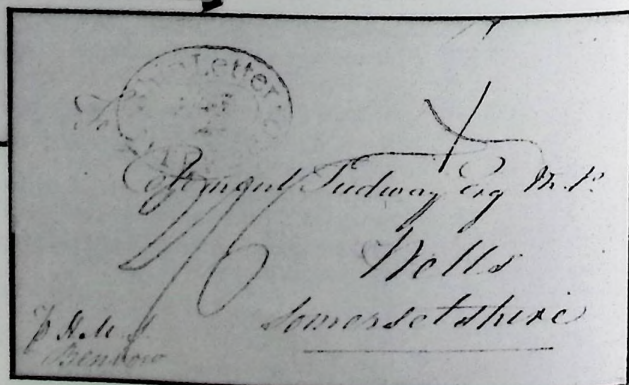 Ship Letter
Tudway Esq M.P.
Wells
Somersetshire
p H.M.S.
Benbow